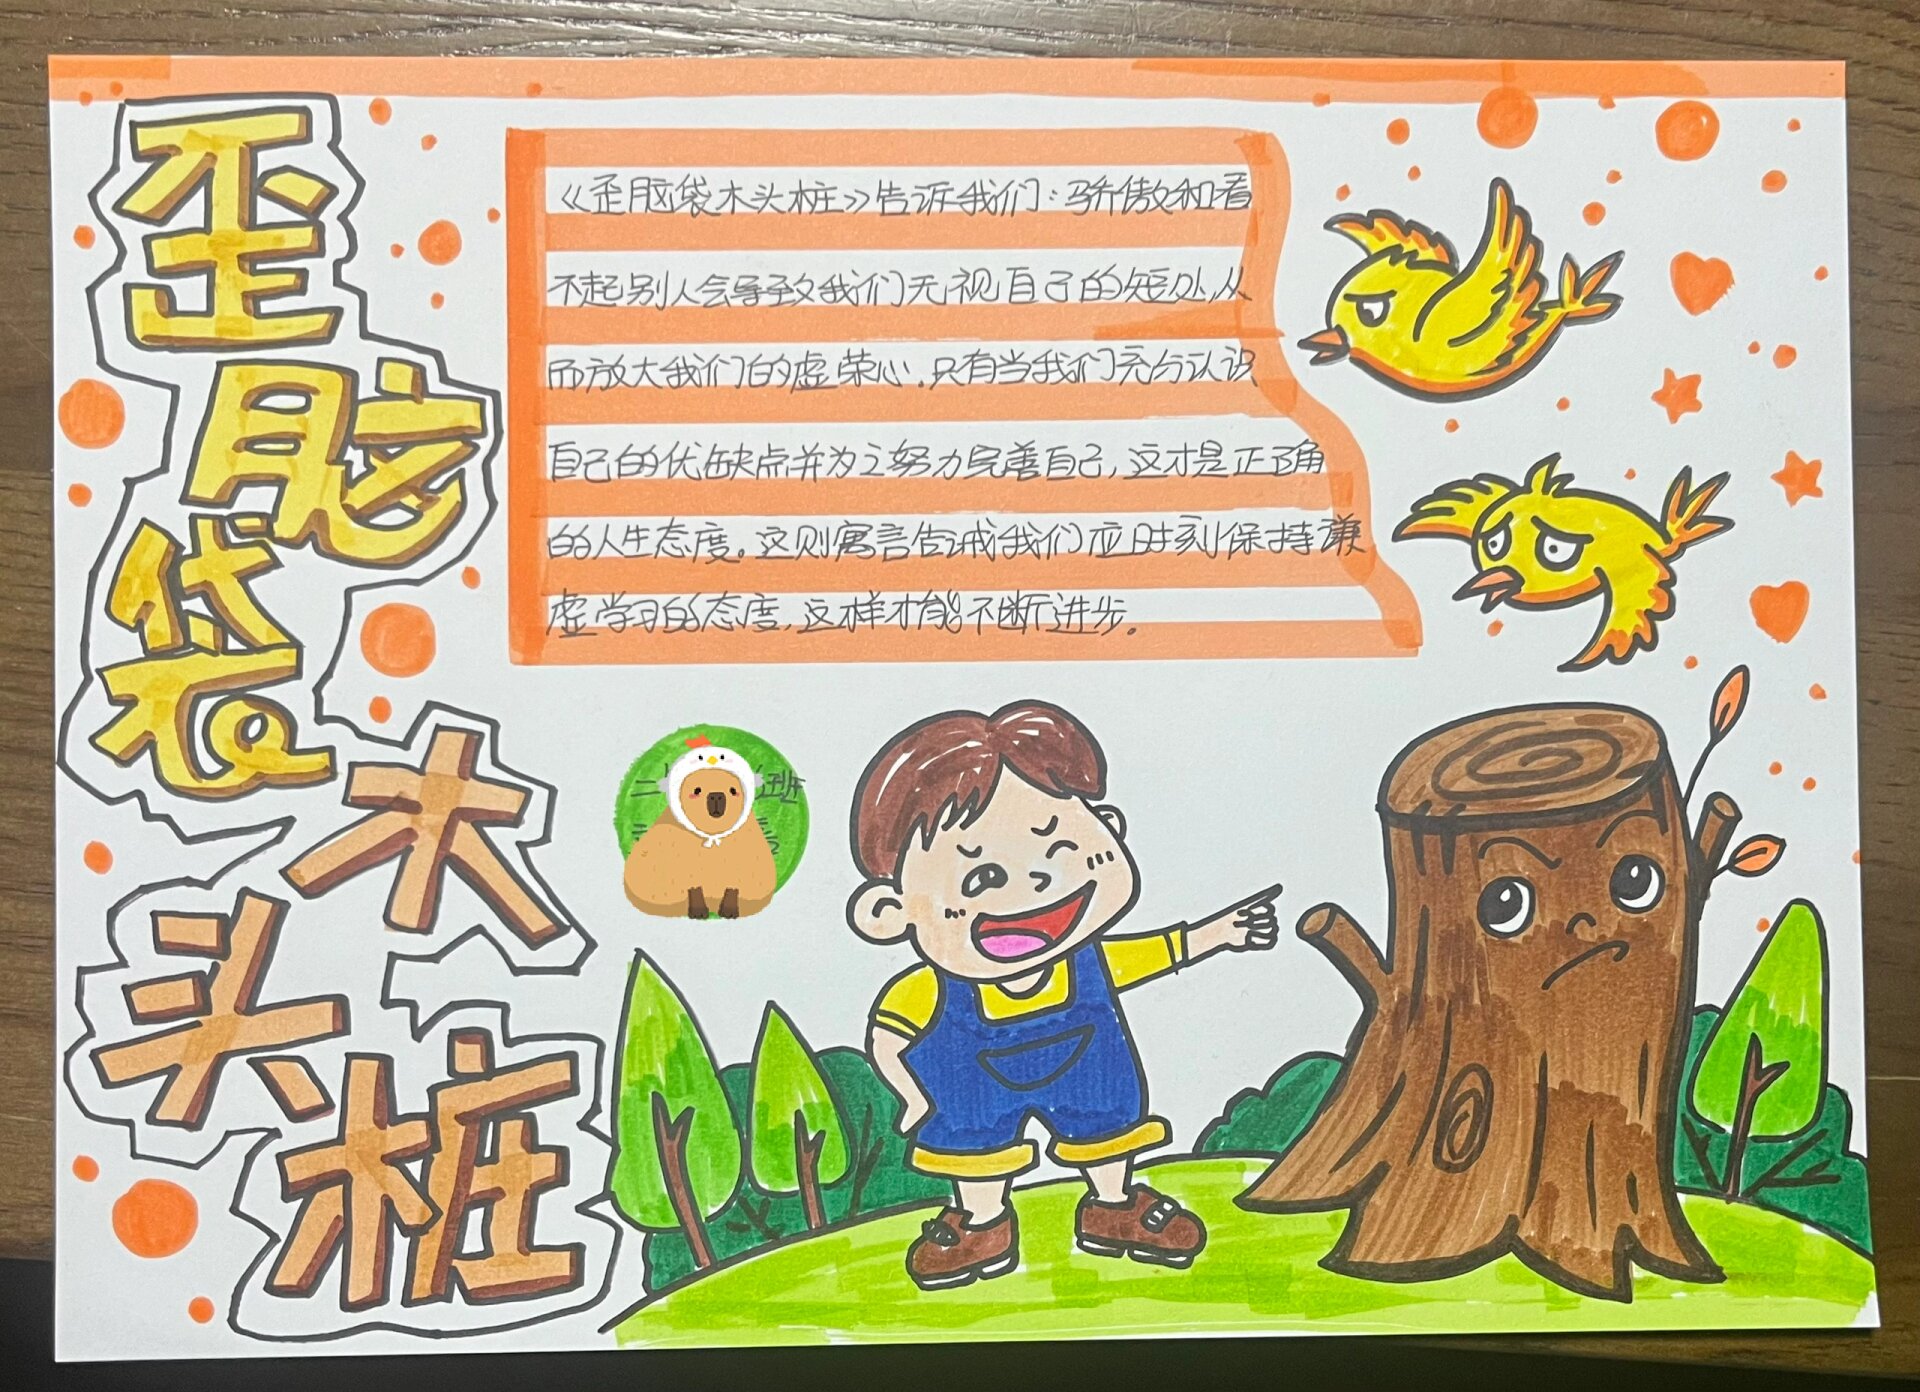 歪脑袋
木头桩
《歪脑袋木头桩》告诉我们：骄傲和看
不起别人会导致我们无视自己的短处，从
而放大我们的虚荣心。只有当我们充分认识
自己的优缺点并为之努力完善自己，这才是正确
的人生态度。这则寓言告诫我们应时刻保持谦
虚学习的态度，这样才能不断进步。
二
班